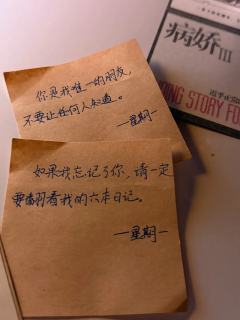 病娇III
ING STORY FO
你是我唯一的朋友，
不要让任何人知道。
—星期一
如果我忘记了你，请一定
要翻看我的六本日记。
—星期一